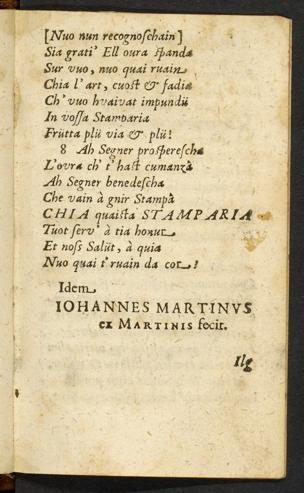 [Nuo nun recognoſchain]
Sia grati' Ell oura ſpanda
Sur vuo, nuo quai ruain
Chia l'art, cuoſt & fadia
Ch' vuo hvaivat impundü
In voſſa Stamparia
Frütta plü via & plü!
8 Ah Segner proſpereſcha
L'ovra ch' t' haſt cumanzà
Ah Segner benedeſcha
Che vain à gnir Stampà
CHIA quaiſta STAMPARIA
Tuot ſerv' à tia honur
Et noſs Salüt, à quia
Nuo quai t' ruain da cor!
Idem
IOHANNES MARTINVS
ex MARTINIS fecit.
Ilg